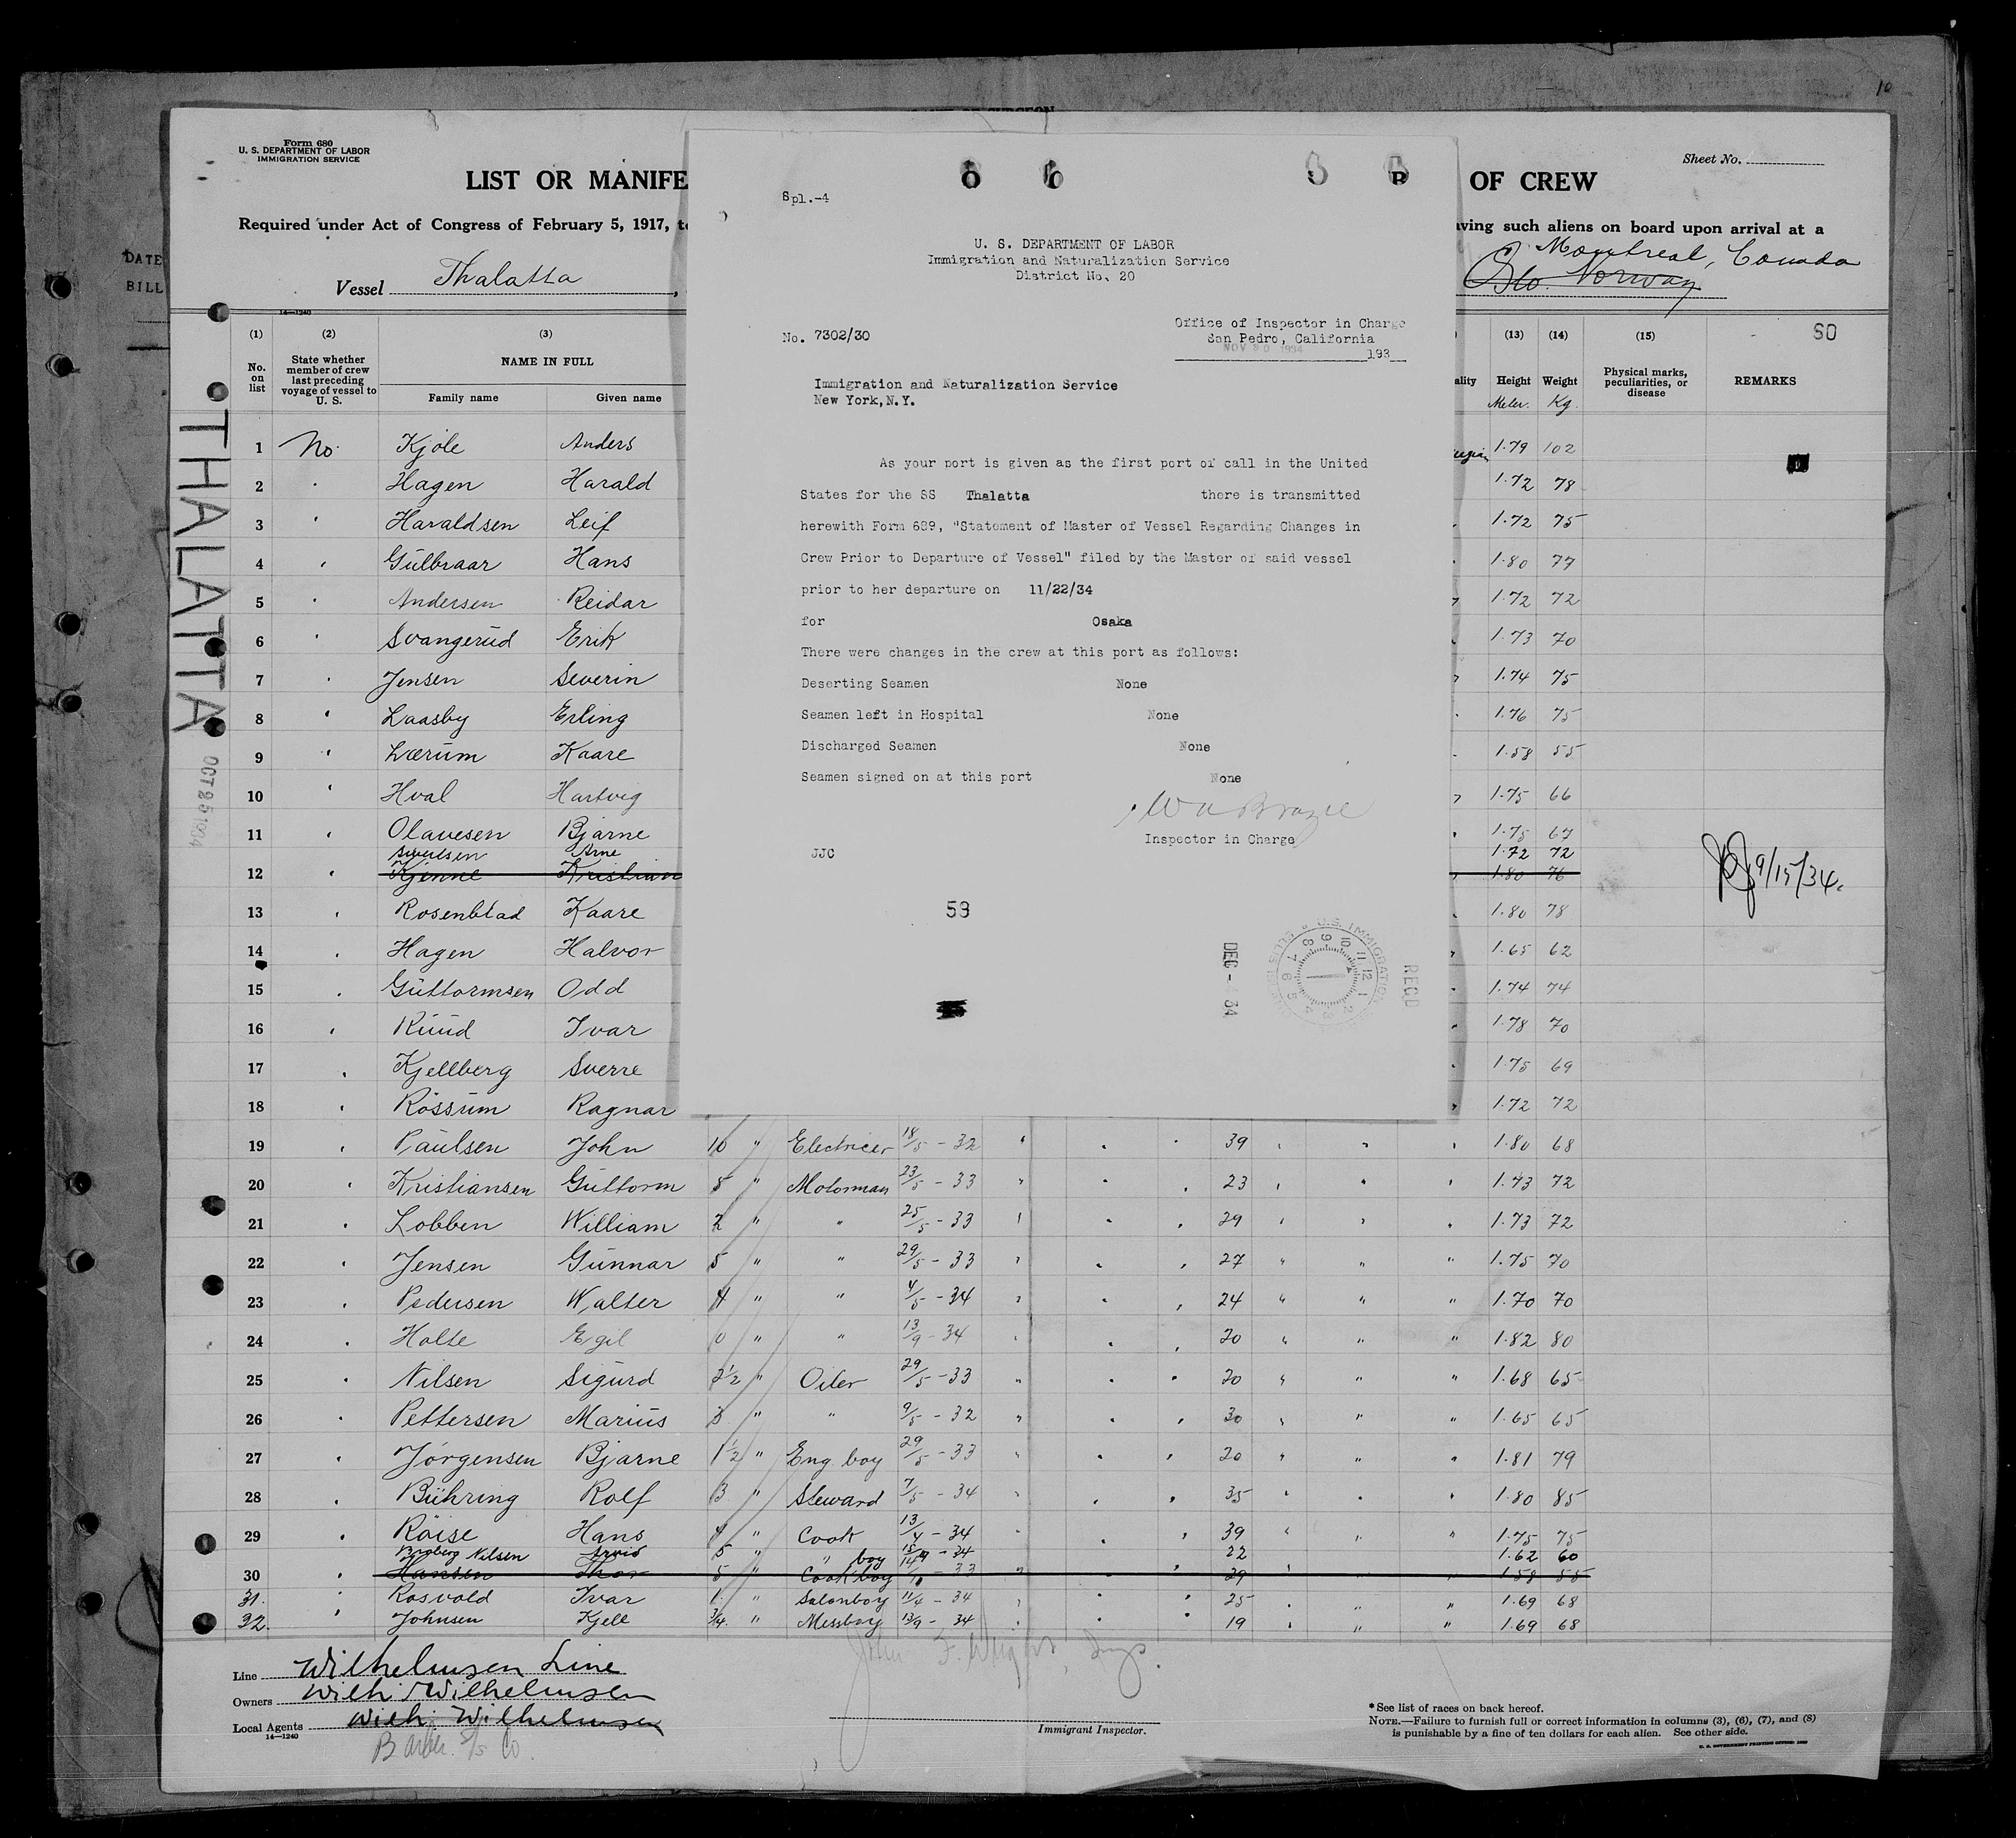 10
Form 680
U. S. DEPARTMENT OF LABOR
IMMIGRATION SERVICE
Sheet No.
LIST OR MANIFE
OF CREW
Required under Act of Congress of February 5, 1917, t
aving such aliens on board upon arrival at a
Vessel Thalatta,
Montreal, Canada
Oslo. Norway
DATE
BILL
14—1240
(1) (2) (3) (13) (14) (15) SO
No. on list
State whether member of crew last preceding voyage of vessel to U. S.
NAME IN FULL
Family name Given name
ality Height Weight
Meter. Kg.
Physical marks, peculiarities, or disease
REMARKS
THALATTA
OCT 25 1934
1 No Kjole Anders 1.79 102
2 Hagen Harald 1.72 78
3 Haraldsen Leif 1.72 75
4 Gulbraar Hans 1.80 77
5 Andersen Reidar 1.72 72
6 Svangerud Erik 1.73 70
7 Jensen Severin 1.74 75
8 Laasby Erling 1.76 75
9 Lærum Kaare 1.58 55
10 Hval Hartvig 1.75 66
11 Olavesen Bjarne 1.75 67
Arne 1.72 72
12 Kjenne Kristian 1.80 76 9/15/34.
13 Rosenblad Kaare 1.80 78
14 Hagen Halvor 1.65 62
15 Guttormsen Odd 1.74 74
16 Ruud Ivar 1.78 70
17 Kjellberg Sverre 1.75 69
18 Rossum Ragnar 1.72 72
19 Paulsen John 10 " Electricer 18/5 - 32 39 1.80 68
20 Kristiansen Guttorm 5 " Motorman 23/5 - 33 23 1.73 72
21 Lobben William 2 " " 25/5 - 33 29 1.73 72
22 Jensen Gunnar 5 " " 29/5 - 33 27 " " " 1.75 70
23 Pedersen Walter 4 " " 4/5 - 34 24 " " " 1.70 70
24 Holte Egil 0 " " 13/9 - 34 20 " " " 1.82 80
25 Nilsen Sigurd 2½ " Oiler 29/5 - 33 20 " " " 1.68 65
26 Pettersen Marius 3 " " 9/5 - 32 30 " " 1.65 65
27 Jørgensen Bjarne 1½ " Eng. boy 29/5 - 33 20 " " " 1.81 79
28 Bühring Rolf 3 " Steward 7/5 - 34 35 1.80 85
29 Röise Hans 4 " Cook 13/4 - 34 39 " " " 1.75 75
Nilsen Arvid 5 " " boy 34 22 1.62 60
30 Hansen Thor 5 " Cook boy - 33 29 1.58 55
31. Rosvold Ivar 1 " Salonboy 11/4 - 34 25 " " 1.69 68
32. Johnsen Kjell 3/4 " Messboy 13/9 - 34 19 " " 1.69 68
Line Wilhelmsen Line
Owners Wilh. Wilhelmsen
Local Agents Wilh. Wilhelmsen
14—1240
Barber S/S Co.
John F. Wright, Insp.
Immigrant Inspector.
* See list of races on back hereof.
NOTE.—Failure to furnish full or correct information in columns (3), (6), (7), and (8)
is punishable by a fine of ten dollars for each alien. See other side.
Spl.-4
U. S. DEPARTMENT OF LABOR
Immigration and Naturalization Service
District No. 20
No. 7302/30
Office of Inspector in Charge
San Pedro, California
NOV 30 1934 193
Immigration and Naturalization Service
New York,N.Y.
As your port is given as the first port of call in the United
States for the SS Thalatta there is transmitted
herewith Form 689, "Statement of Master of Vessel Regarding Changes in
Crew Prior to Departure of Vessel" filed by the Master of said vessel
prior to her departure on 11/22/34
for Osaka
There were changes in the crew at this port as follows:
Deserting Seamen None
Seamen left in Hospital None
Discharged Seamen None
Seamen signed on at this port None
W A Brazie
Inspector in Charge
JJC
53
DEC - 34
U.S. IMMIGRATION
ELLIS
12 1 2 3 4 5 6 7 8 9 10 11
RECD